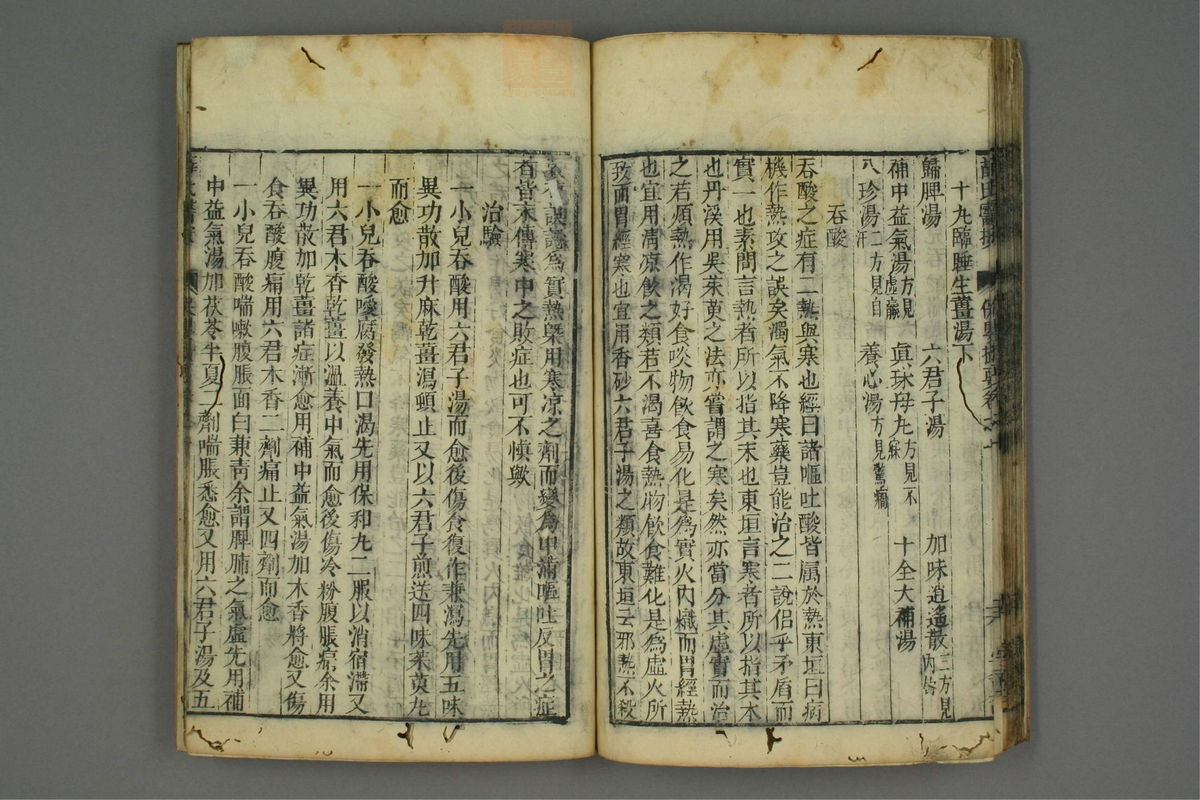 十丸臨睡生薑湯下
歸脾湯 六君子湯 加味逍遙散三方見内
補中益氣湯方見虛羸 眞珠母丸方見不寐 十全大補湯
八珍湯二方見自汗 養心湯方見驚癇
吞酸
吞酸之症有二熱與寒也經曰諸嘔吐酸皆属於熱東垣曰病
機作熱攻之誤矣濁氣不降寒藥豈能治之二說侣乎矛盾而
實一也素問言熱者所以指其末也東垣言寒者所以指其本
也丹溪用吳茱萸之法亦嘗謂之寒矣然亦當分其虛實而治
之若頻熱作渴好食啖物飲食易化是爲實火内熾而胃經熱
也宜用清凉飲之類若不渴喜食熱物飲食難化是爲虛火所
致而胃經寒也宜用香砂六君子湯之類故東垣云邪熱不殺
誤認爲實熱槩用寒凉之劑而變爲中滿嘔吐反胃之症
者皆末傳寒中之敗症也可不慎歟
治驗
一小兒吞酸用六君子湯而愈後傷食復作兼瀉先用五味
異功散加升麻乾薑瀉頓止又以六君子煎送四味茱萸丸
而愈
一小兒吞酸噯腐發熱口渴先用保和丸二服以消宿滯又
用六君木香乾薑以溫養中氣而愈後傷冷粉腹脹痛余用
異功散加乾薑諸症漸愈用補中益氣湯加木香將愈又傷
食吞酸腹痛用六君木香二劑痛止又四劑而愈
一小兒吞酸喘嗽腹脹面白兼青余謂脾肺之氣虛先用補
中益氣湯加茯苓半夏二劑喘脹悉愈又用六君子湯及五